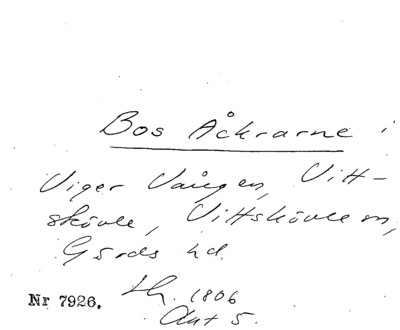 Bos Åkrarne i
Viger Vången, Vitt-
skövle, Vittskövle sn,
Gärds hd.
Nr 7926. Lh. 1806
Akt 5.